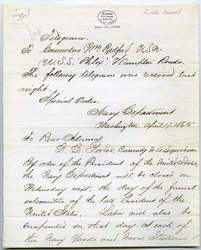 Telegram.
To Commodore Wm Radford U.S.N.
U.S.S. Phila. Hampton Roads.
The following telegram was received last
night.
Special Order.
Navy Department
Washington April 17. 1865
To Rear Admiral
D. D. Porter, Comm'g N. A. Squadron
By order of the President of the United States
the Navy Department will be closed on
Wednesday next, the day of the funeral
solemnities of the late President of the
United States. Labor will also be
suspended on that day at each of
the Navy Yards and Naval Stations